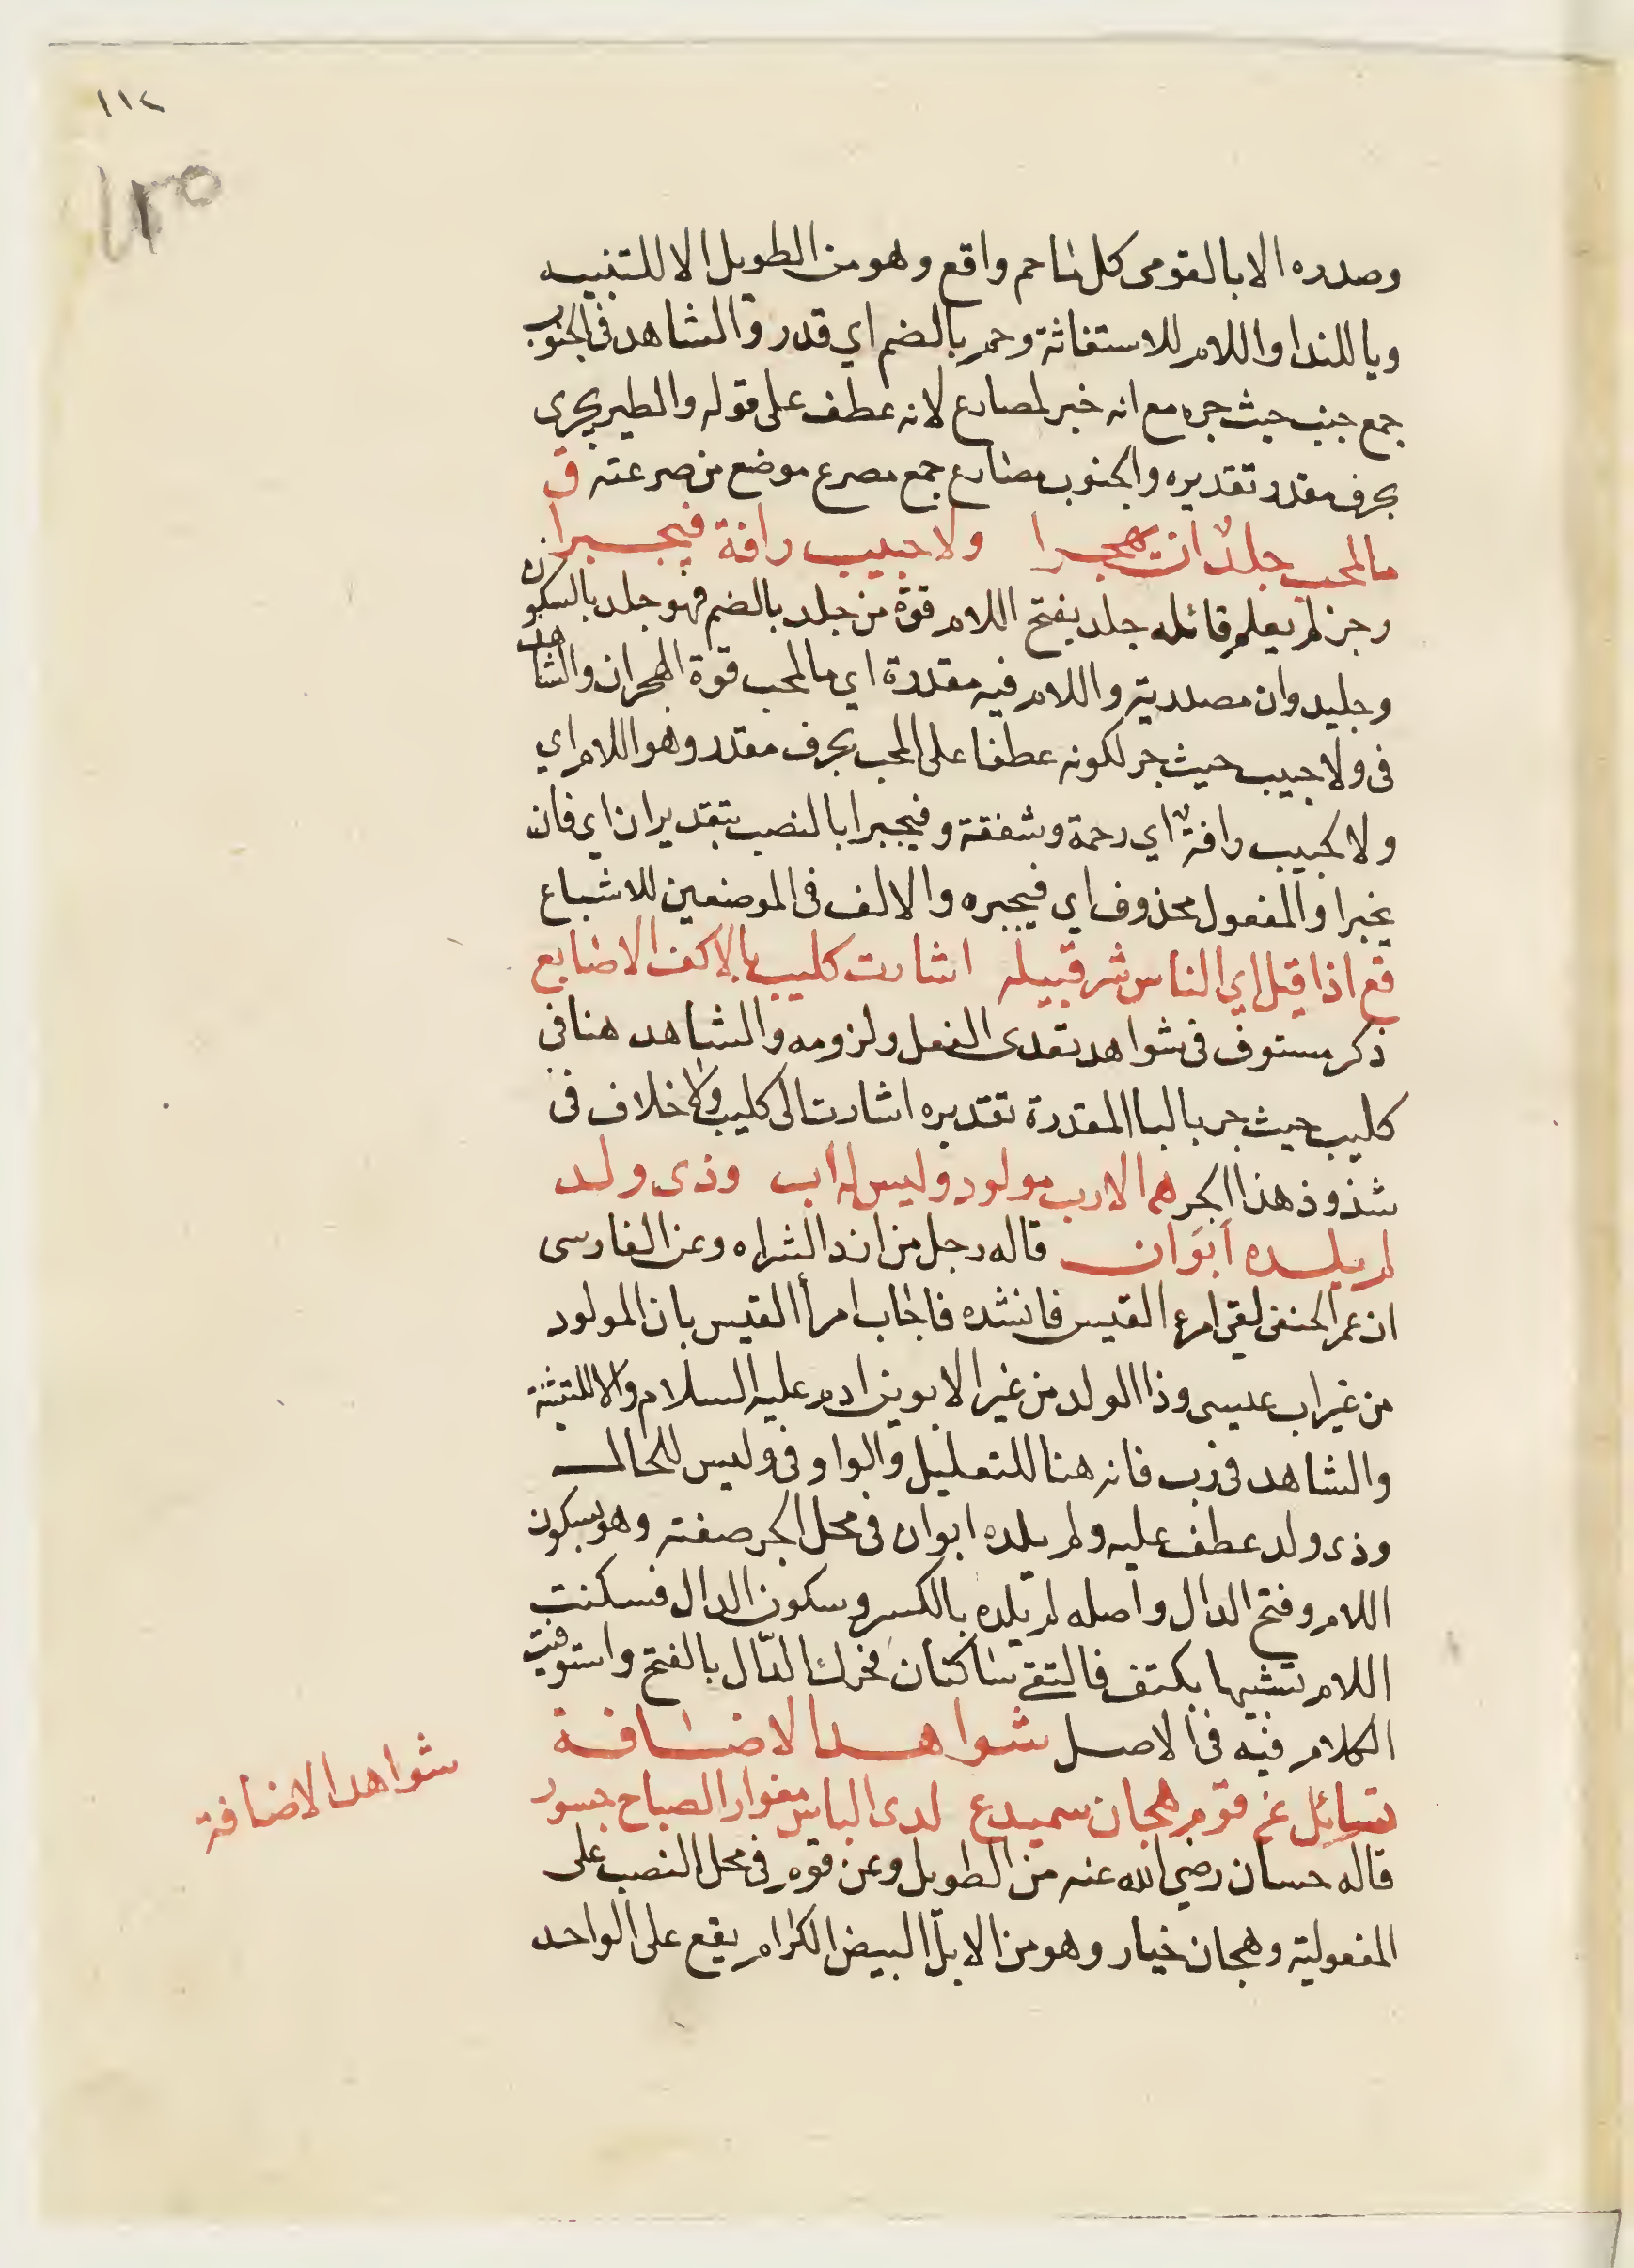 ١١٢
١٢٥
وصدره الا يا لقومى كل ما حم واقع وهو من الطويل الا للتنبيه
ويا للندا واللام للاستغاثة وحم بالضم اي قدر والشاهد فى الجنوب
جمع جنب حيث جره مع انه خبر لمصارع لانه عطف على قوله والطير يجرى
بحرف مقدر تقديره والجنوب مصارع جمع مصرع موضع من صرعته ق
ما لمحب جلد ان يهجرا ولا حبيب رافة فيجبرا
رجز لم يعلم قائله جلد بفتح اللام قوة من جلد بالضم فهو جلد بالسكون
وجليد وان مصدرية واللام فيه مقدرة اي ما لمحب قوة الهجران والشاهد
فى ولا حبيب حيث جر لكونه عطفا على المحب بحرف مقدر وهو اللام اي
ولا لحبيب رافة اي رحمة وشفقة وفيجبرا بالنصب بتقدير ان اي فان
يجبرا والمفعول محذوف اي فيجبره والالف فى الموضعين للاشباع
قع اذا قيل اي الناس شر قبيله اشارت كليب بالاكف الاصابع
ذكر مستوف فى شواهد تعدى الفعل ولزومه والشاهد هنا فى
كليب حيث جر بالبا المقدرة تقديره اشارت الى كليب ولا خلاف فى
شذوذ هذا الجر هم الا رب مولود وليس له اب وذى ولد
لم يلده أبوان قاله رجل من ازد الشراه وعن الفارسى
ان عمر الحنفى لقى امرء القيس فانشده فاجاب امرأ القيس بان المولود
من غير اب عيسى وذا الولد من غير الابوين ادم عليه السلام والا للتنبيه
والشاهد فى رب فانه هنا للتعليل والواو فى وليس للحال
وذى ولد عطف عليه ولم يلده ابوان فى محل الجر صفته وهو بسكون
اللام وفتح الدال واصله لم يلده بالكسر وسكون الدال فسكنت
اللام تشبيها بكتف فالتقى ساكنان فحرك الدال بالفتح واستوفيت
الكلام فيه فى الاصل شواهد الاضافة
شواهد الاضافة
تسائل عن قوم هجان سميدع لدى الباس مغوار الصباح جسور
قاله حسان رضي الله عنه من الطويل وعن قوم فى محل النصب على
المفعولية وهجان خيار وهو من الابل البيض الكرام يقع على الواحد